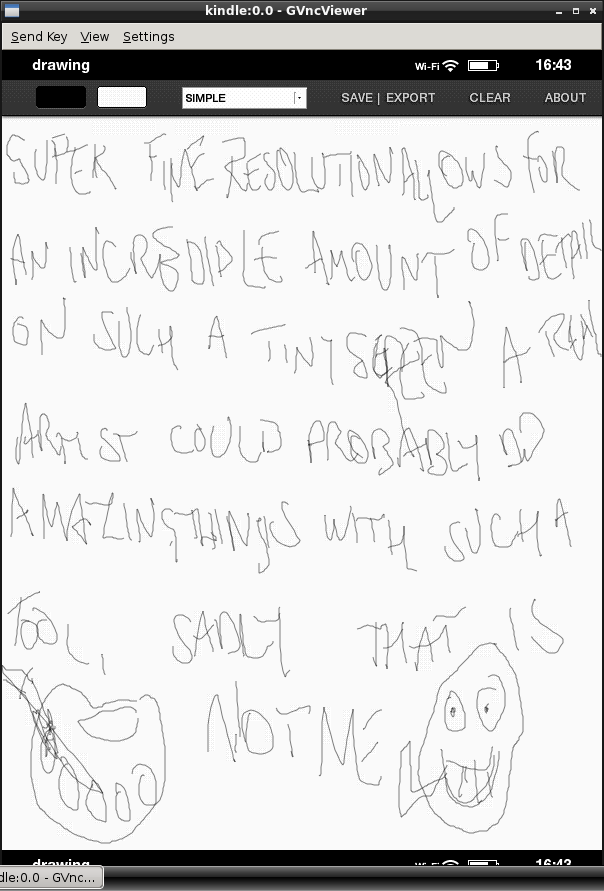 kindle:0.0 - GVncViewer
Send Key View Settings
drawing Wi-Fi 16:43
SIMPLE SAVE | EXPORT CLEAR ABOUT
SUPER FINE RESOLUTION ALLOWS FOR
AN INCREDIBLE AMOUNT OF DETAIL
ON SUCH A TINY SCREEN A REAL
ARTIST COULD PROBABLY DO
AMAZING THINGS WITH SUCH A
TOOL, SADLY THAT IS
NOT ME
drawing Wi-Fi 16:43
dle:0.0 - GVnc...